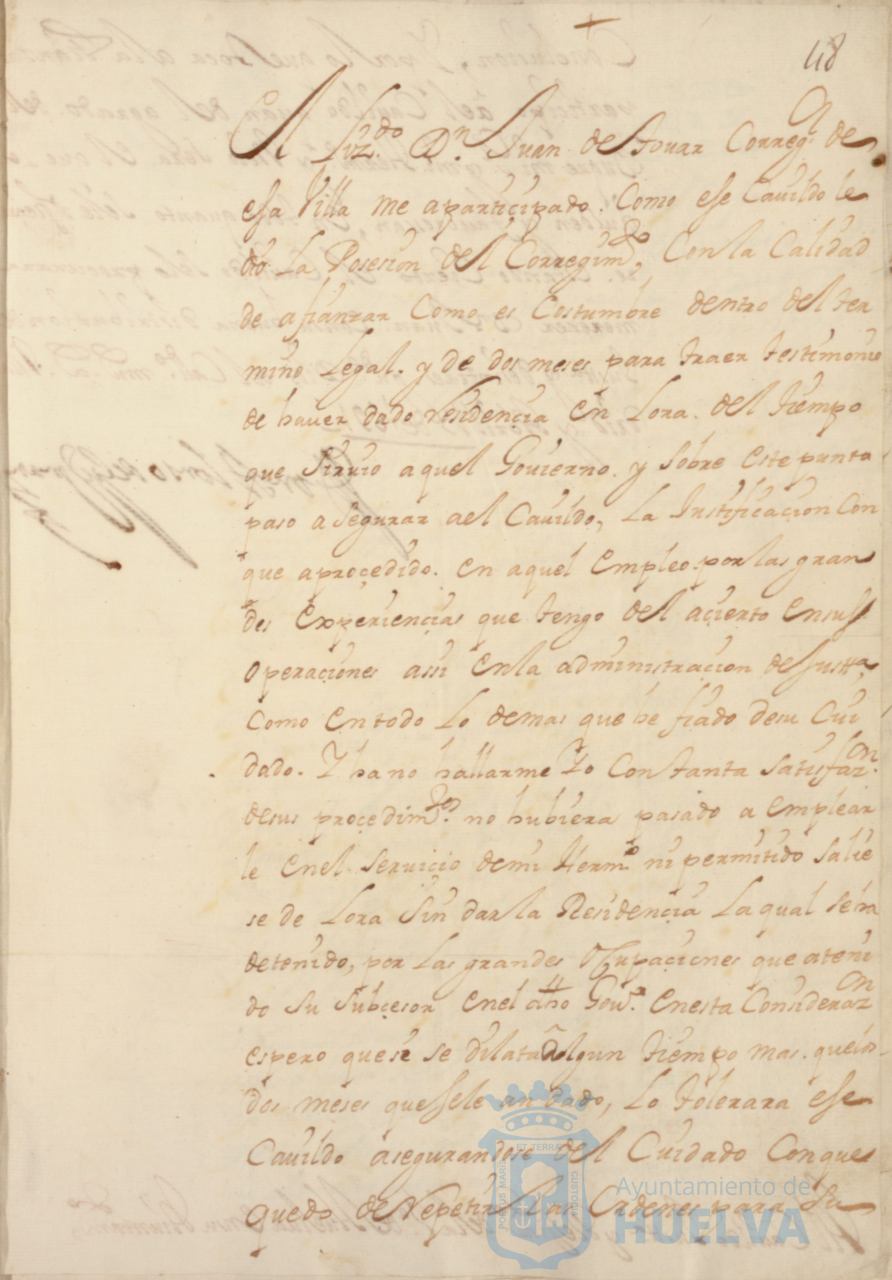 +
48
El Liz.do D.n Juan de Tovar Correg.r de
essa Villa me a participado. Como ese Cavildo le
dio La Posesion del Corregim.to, Con la Calidad
de afianzar Como es Costumbre dentro del ter
mino Legal. y de dos meses para traer testimonio
de haver dado residencia en Lora. del tiempo
que sirvio aquel Govierno. y sobre este punta
paso a segurar a el Cavildo, La Justificacion Con
que a procedido. en aquel empleo. por las gran
des experiencias que tengo del acierto en sus
operaciones assi en la administracion de Just.a,
Como en todo Lo demas que he fiado de su Cui
dado. Y ha no hallarme Yo Con tanta satisfaz.on
de sus procedim.tos no hubiera pasado a emplear
le en el servicio de mi Herm.o ni permitido salie
se de Lora sin dar la Residencia La qual se ha
detenido, por Las grandes Ocupaciones que a teni
do su subcesor en el dho Gov.o en esta Consideraz.on
espero que si se dilata algun tiempo mas. que los
dos meses que se le an dado, Lo tolerara ese
Cavildo asegurandose del Cuidado Con que
quedo de repetir Las Ordenes para su
Ayuntamiento de
HUELVA